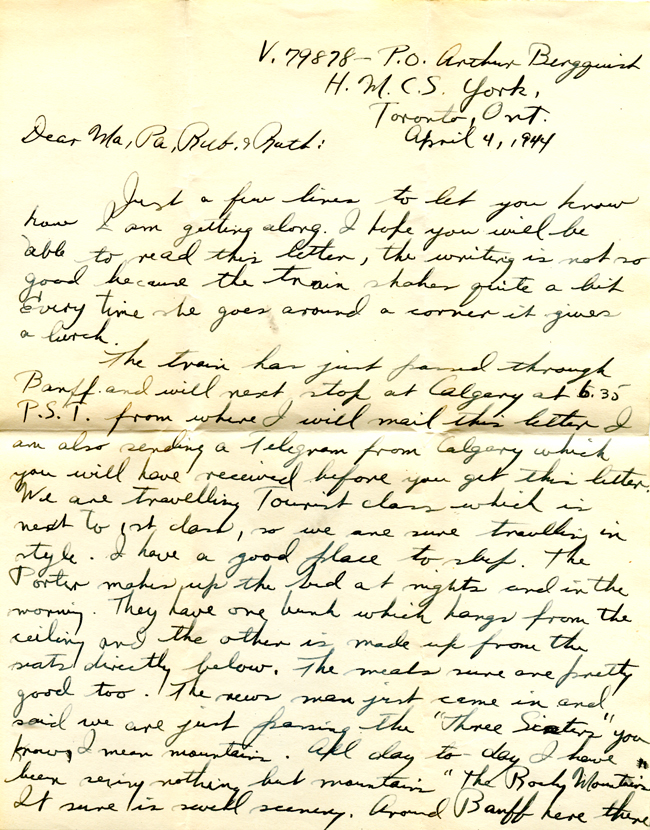 V. 79878 - P.O. Arthur Bergquist
H. M. C. S. York,
Toronto, Ont.
April 4, 1944
Dear Ma, Pa, Rub. & Ruth:
Just a few lines to let you know
how I am getting along. I hope you will be
able to read this letter, the writing is not so
good because the train shakes quite a bit
Every time she goes around a corner it gives
a lurch.
The train has just passed through
Banff and will next stop at Calgary at 6.35
P.S.T. from where I will mail this letter I
am also sending a Telegram from Calgary which
you will have received before you get this letter.
We are travelling Tourist class which is
next to 1st class, so we are sure travlling in
style. I have a good place to sleep. The
Porter makes up the bed at nights and in the
morning. They have one bunk which hangs from the
ceiling and the other is made up from the
seats directly below. The meals sure are pretty
good too. The news man just came in and
said we are just passing the "Three Sisters" you
know, I mean mountains. All day to-day I have
been seeing nothing but mountains "The Rocky Mountains"
It sure is swell scenery. Around Banff here there